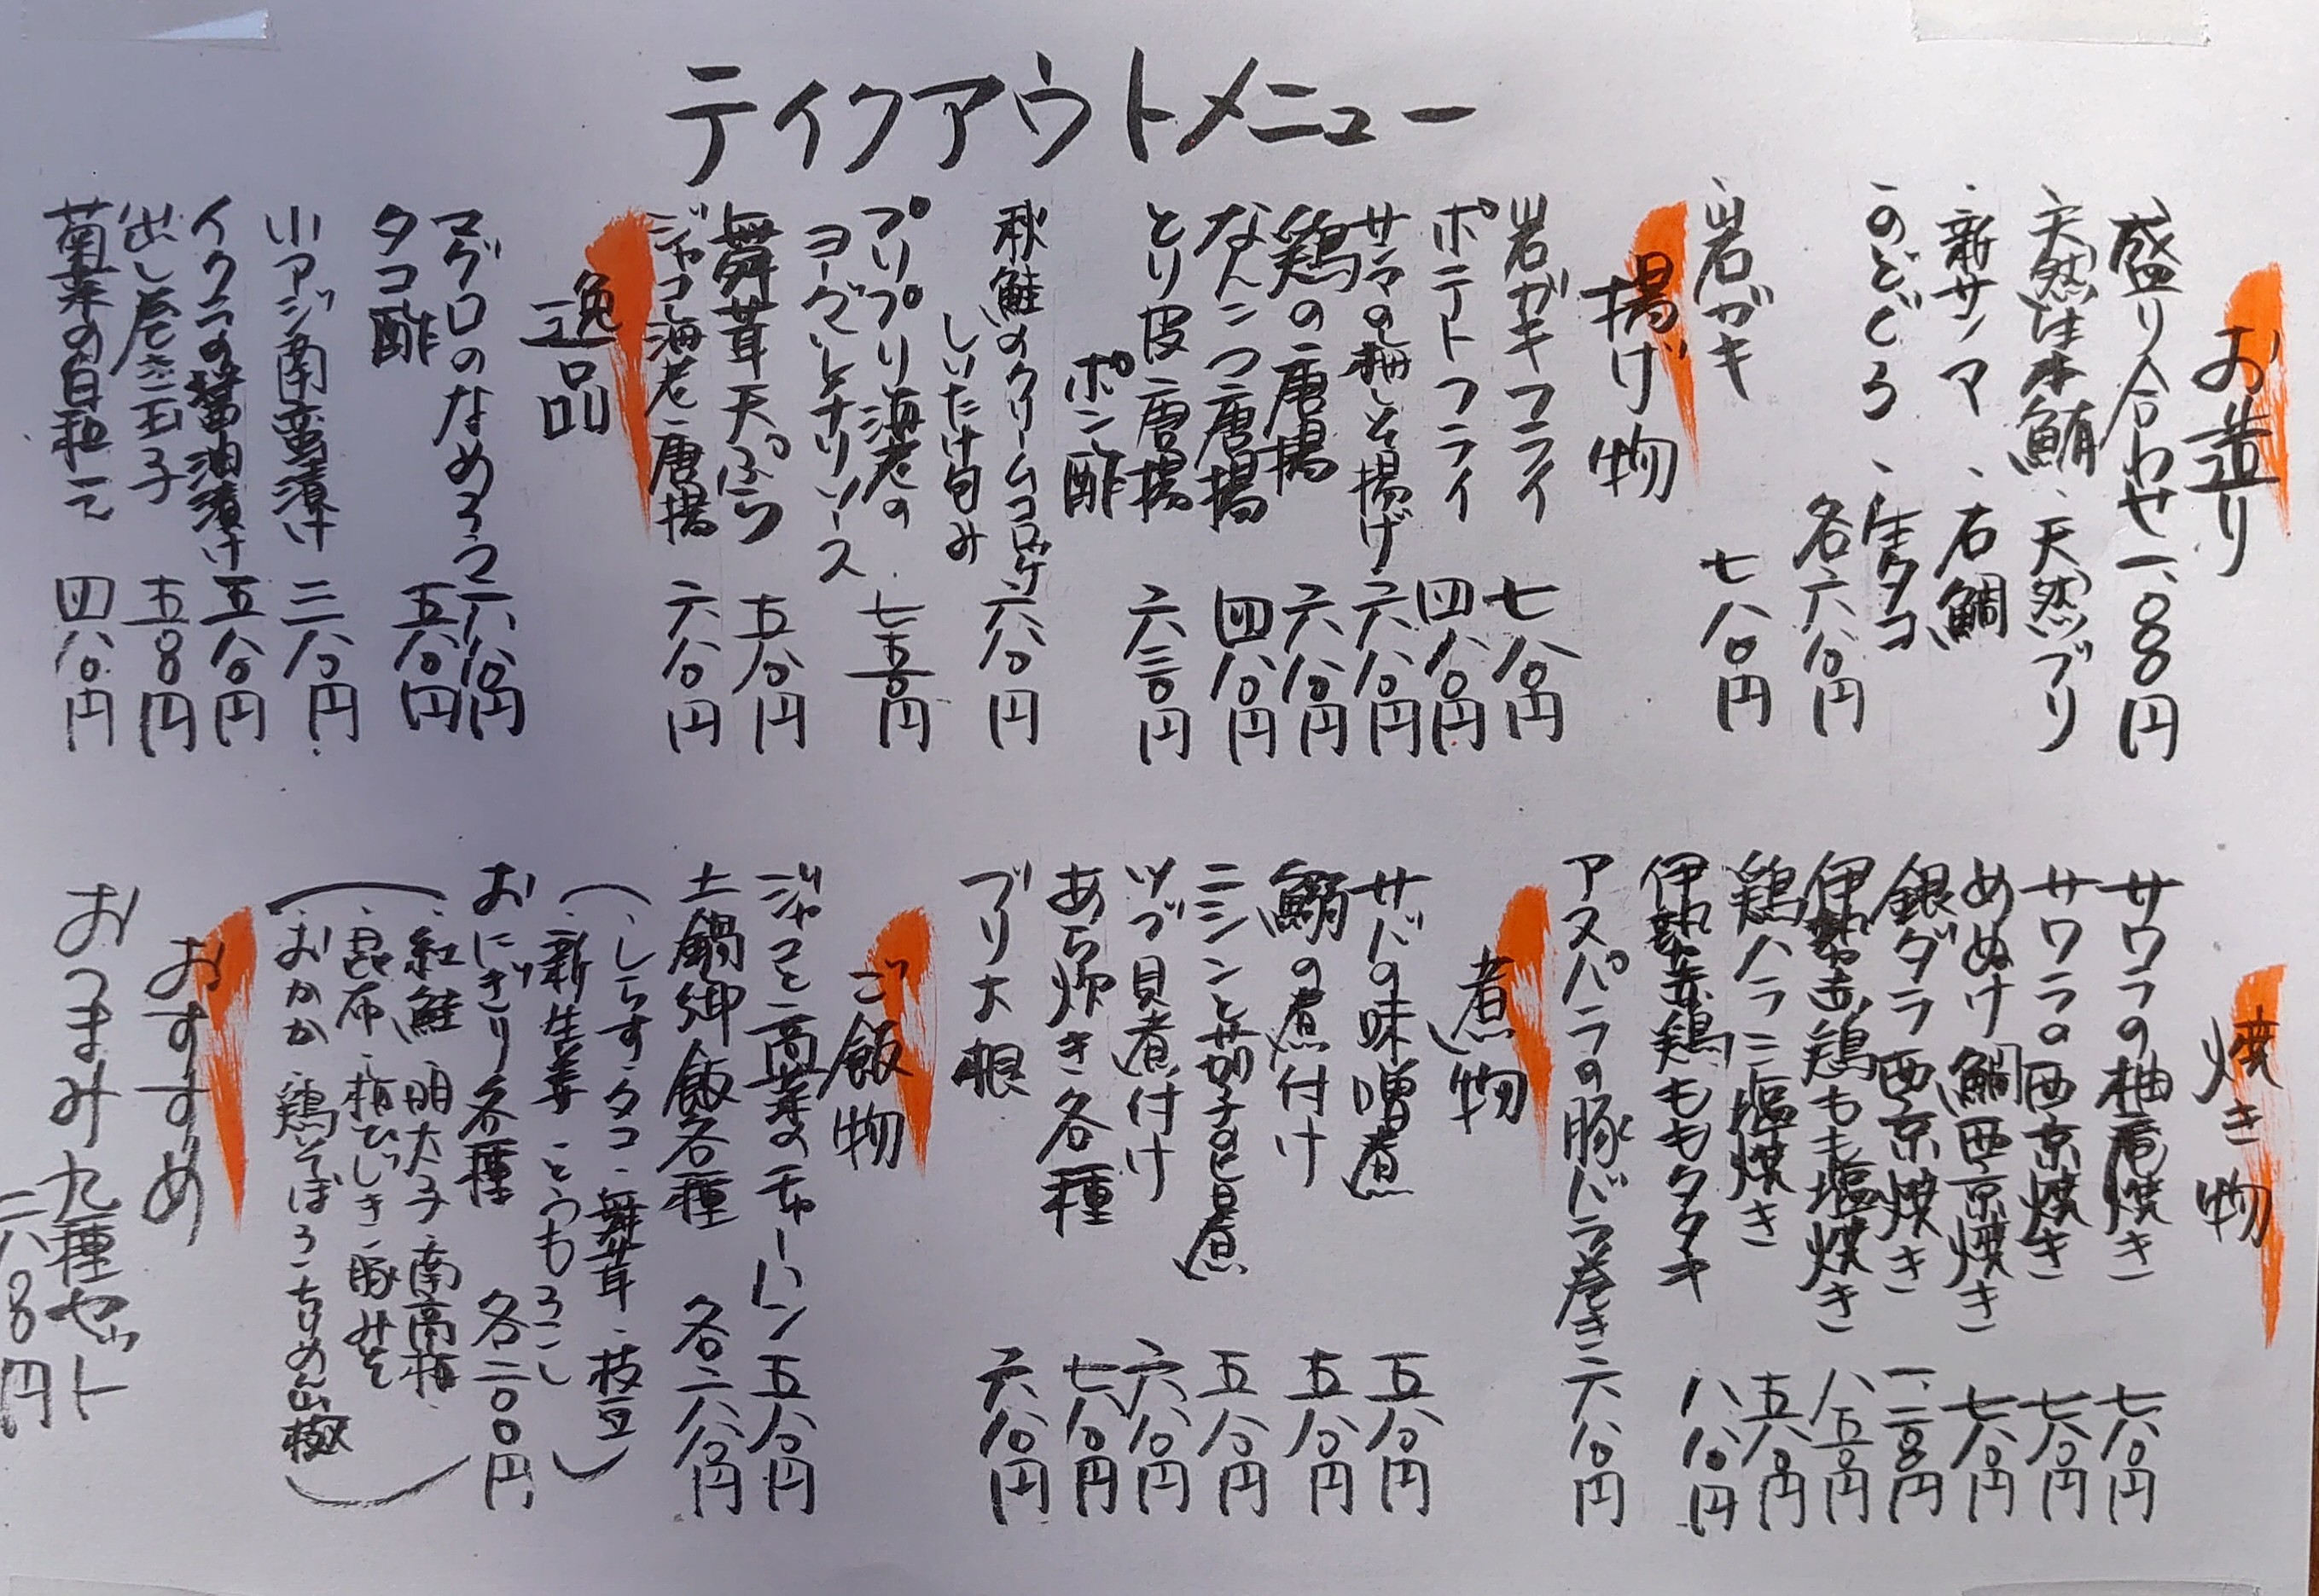 テイクアウトメニュー
お造り
盛り合わせ 一、〇〇〇円
、天然生本鮪 、天然ブリ
、新サンマ 、石鯛
、のどぐろ 、生タコ
各六八〇円
、岩ガキ 七八〇円
揚げ物
岩ガキフライ 七八〇円
ポテトフライ 四八〇円
サンマの梅しそ揚げ 六八〇円
鶏の唐揚 六八〇円
なんこつ唐揚 四八〇円
とり皮唐揚 六三〇円
ポン酢
秋鮭のクリームコロッケ 六八〇円
しいたけ包み
プリプリ海老の 七五〇円
ヨーグルトチリソース
舞茸天ぷら 五八〇円
ジャコ海老唐揚 六八〇円
逸品
マグロのなめろう 六八〇円
タコ酢 五八〇円
小アジ南蛮漬け 三八〇円
イクラの醤油漬け 五八〇円
出し巻き玉子 五〇〇円
菊菜の白和え 四八〇円
焼き物
サワラの柚庵焼き 七八〇円
サワラの西京焼き 七八〇円
めぬけ鯛西京焼き 七八〇円
銀ダラ西京焼き 一、二〇〇円
伊勢赤鶏もも塩焼き 八五〇円
鶏ハラミ塩焼き 五八〇円
伊勢赤鶏ももタタキ 八八〇円
アスパラの豚バラ巻き 六八〇円
煮物
サバの味噌煮 五八〇円
鰯の煮付け 五八〇円
ニシンと茄子の煮 五八〇円
ツブ貝煮付け 六八〇円
あら炊き各種 七八〇円
ブリ大根 六八〇円
ご飯物
ジャコと高菜のチャーハン 五八〇円
土鍋御飯各種 各二六八〇円
（、しらす、タコ、舞茸、枝豆
、新生姜 、とうもろこし）
おにぎり各種 各二〇〇円
（、紅鮭 、明太子、南高梅
、昆布、梅ひじき、豚みそ
、おかか、鶏そぼろ、ちりめん山椒）
おすすめ
おつまみ九種セット
二八〇〇円